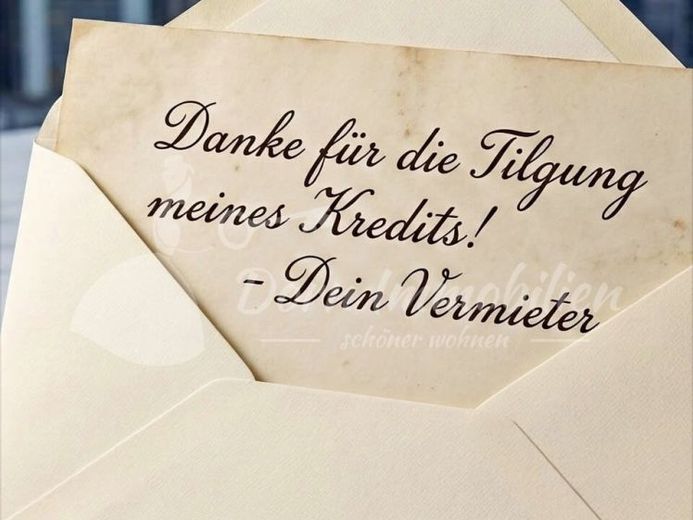 Danke für die Tilgung
meines Kredits!
- Dein Vermieter
Immobilien
schöner wohnen